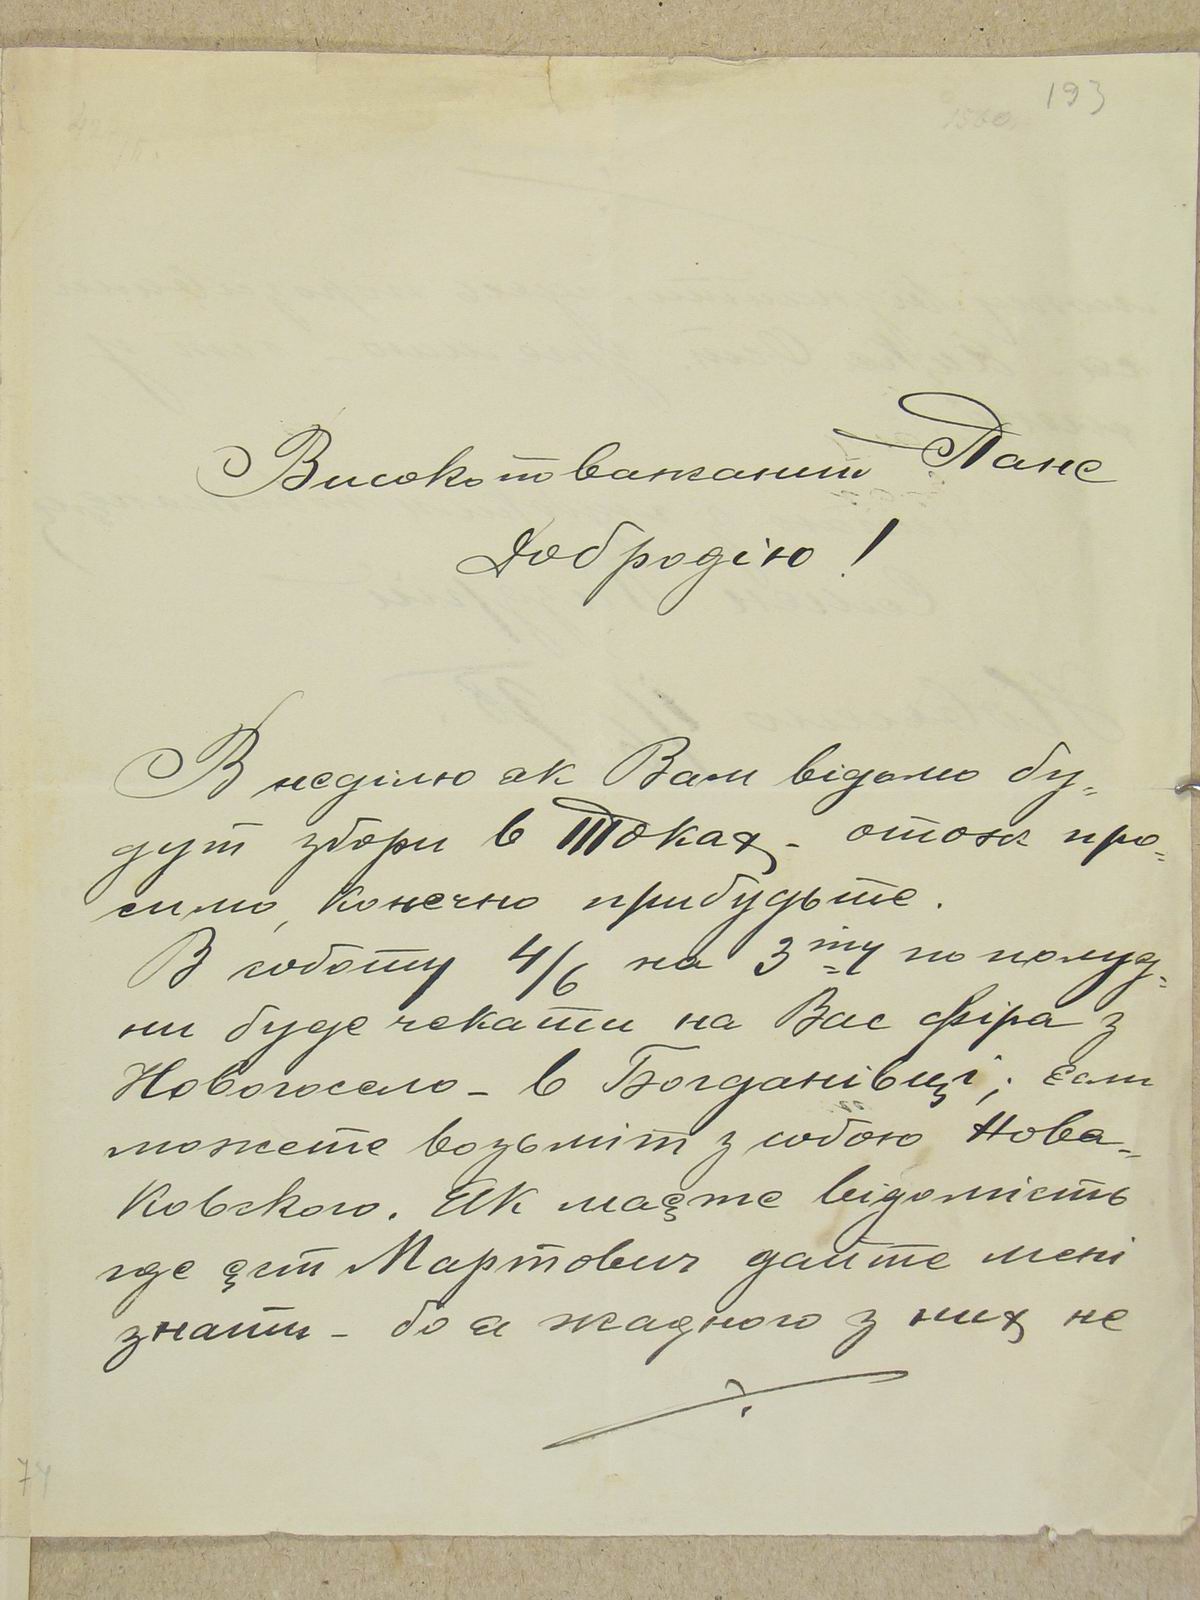 193
Високоповажаний Пане
Добродію!
В неділю як Вам відомо бу=
дут збори в Токах - отож про=
симо, конечно прибудьте.
В соботу 4/6 на 3ту по полуд=
ни буде чекати на Вас фіра з
Новогосело - в Богданівці; Если
можете возьміт з собою Нова-
ковского. Як маєте відомість
где єст Мартович дайте мені
знати - бо я жадного з них не
74